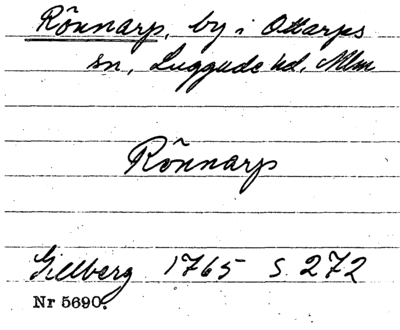 Rönnarp, by i Ottarps
sn, Luggude hd, Mlm
Rönnarp
Gillberg 1765 S. 272
Nr 5690.